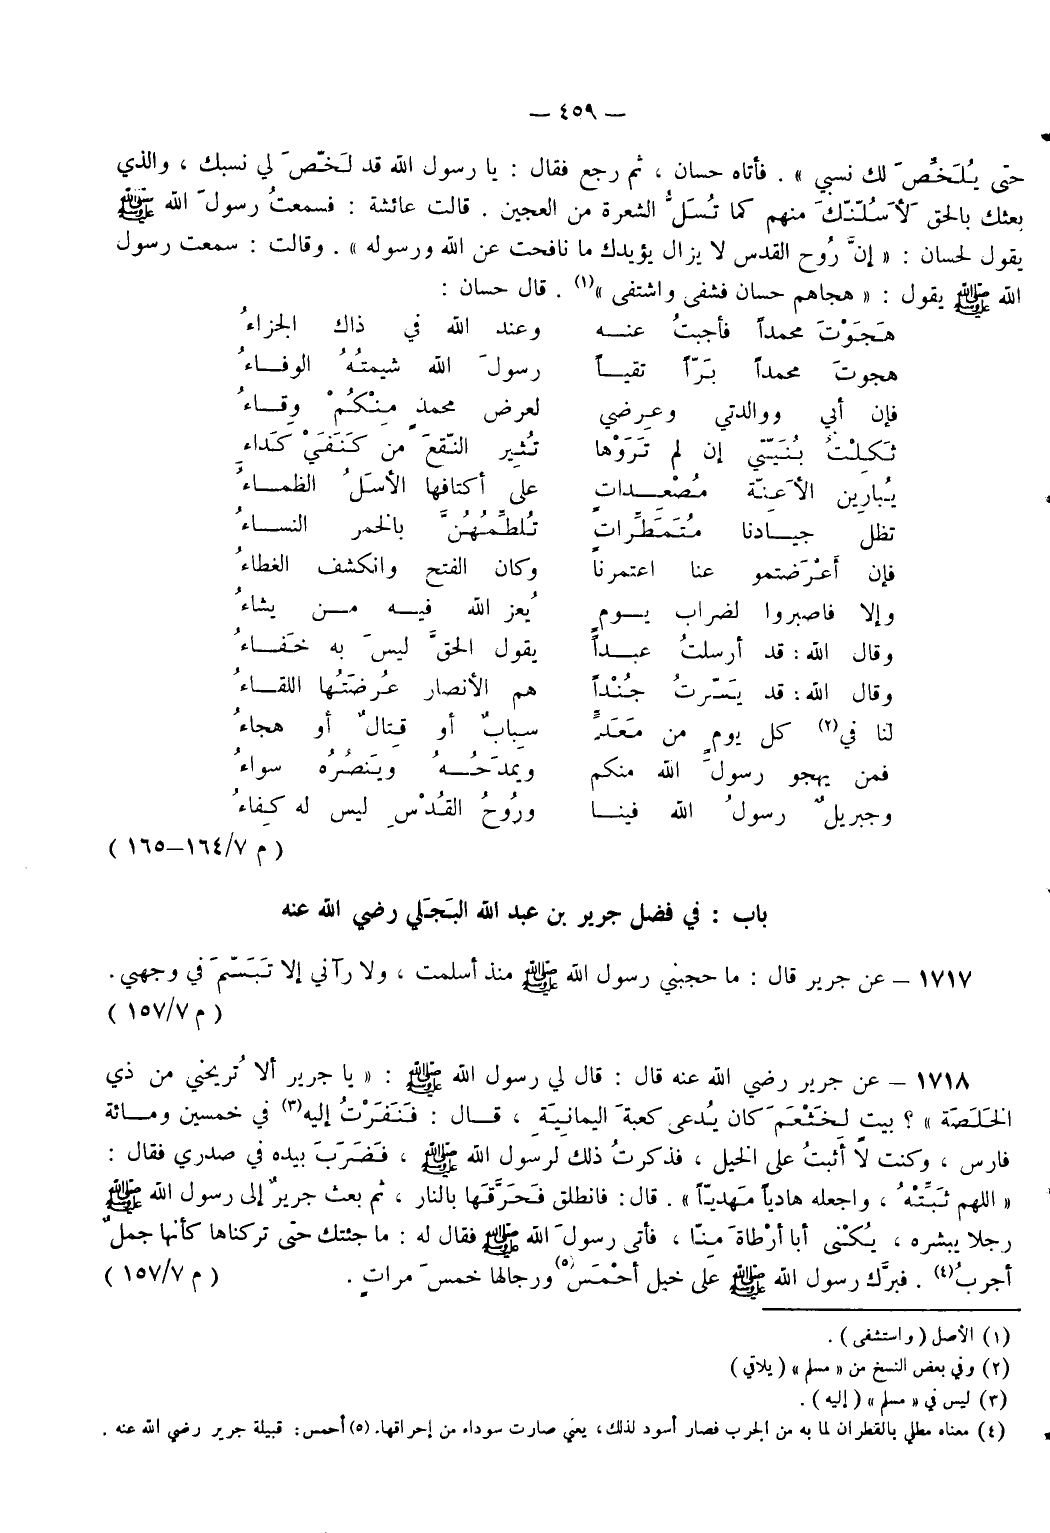 — ٤٥٩ —
حتى يُلَخِّصَ لك نسبي » . فأتاه حسان ، ثم رجع فقال : يا رسول الله قد لَخّصَ لي نسبك ، والذي
بعثك بالحق لأَسُلّنّكَ منهم كما تُسَلُّ الشعرة من العجين . قالت عائشة : فسمعتُ رسولَ الله ﷺ
يقول لحسان : « إنَّ رُوح القدس لا يزال يؤيدك ما نافحت عن الله ورسوله » . وقالت : سمعت رسول
الله ﷺ يقول : « هجاهم حسان فشفى واشتفى »(١) . قال حسان :
هَجَوْتَ محمداً فأجبتُ عنه وعند الله في ذاك الجزاءُ
هجوتَ محمداً بَرّاً تقياً رسولَ الله شيمتُهُ الوفاءُ
فإن أبي ووالدتي وعِرضي لعرض محمدٍ مِنْكُمْ وِقاءُ
ثَكِلْتُ بُنَيّتي إن لم تَرَوْها تُثير النّقعَ من كَنَفَيْ كَداءِ
يُبارين الأَعِنّة مُصْعِداتٍ على أكتافها الأسَلُ الظماءُ
تظل جيادنا مُتَمَطِّراتٍ تُلطِّمُهُنَّ بالخمر النساءُ
فإن أعْرَضتمو عنا اعتمرنا وكان الفتح وانكشف الغطاءُ
وإلا فاصبروا لضراب يومٍ يُعز الله فيه من يشاءُ
وقال الله : قد أرسلتُ عبداً يقول الحقَّ ليسَ به خَفاءُ
وقال الله : قد يَسّرتُ جُنْداً هم الأنصار عُرضَتُها اللقاءُ
لنا في(٢) كل يومٍ من مَعَدٍّ سِبابٌ أو قِتالٌ أو هجاءُ
فمن يهجو رسولَ الله منكم ويمدَحُهُ وينَصُرُه سواءُ
وجبريلٌ رسولُ الله فينا ورُوحُ القُدْسِ ليس له كِفاءُ
( م ٧/١٦٤–١٦٥ )
باب : في فضل جرير بن عبد الله البَجَلي رضي الله عنه
١٧١٧ – عن جرير قال : ما حجبني رسول الله ﷺ منذ أسلمت ، ولا رآني إلا تَبَسّمَ في وجهي .
( م ٧/١٥٧ )
١٧١٨ – عن جرير رضي الله عنه قال : قال لي رسول الله ﷺ : « يا جرير ألا تُريحني من ذي
الخَلَصَة » ؟ بيت لخَثْعَمَ كان يُدعى كعبةَ اليمانِيَةِ ، قال : فَنَفَرْتُ إليه(٣) في خمسين ومائة
فارس ، وكنت لا أثبتُ على الخيل ، فذكرتُ ذلك لرسول الله ﷺ ، فضَرَبَ بيده في صدري فقال :
« اللهم ثَبِّتْهُ ، واجعله هادياً مَهديّاً » . قال : فانطلق فَحَرَّقَها بالنار ، ثم بعث جريرٌ إلى رسول الله ﷺ
رجلا يبشره ، يُكْنى أبا أرْطاةَ مِنّا ، فأتى رسولَ الله ﷺ فقال له : ما جئتك حتى تركناها كأنها جملٌ
أجربُ(٤) . فبرَّك رسول الله ﷺ على خيل أحْمَسَ(٥) ورجالها خمسَ مراتٍ . ( م ٧/١٥٧ )
(١) الأصل ( واستشفى ) .
(٢) وفي بعض النسخ من « مسلم » ( يلاقي )
(٣) ليس في « مسلم » ( إليه ) .
(٤) معناه مطلي بالقطران لما به من الجرب فصار أسود لذلك ، يعني صارت سوداء من إحراقها. (٥) أحمس : قبيلة جرير رضي الله عنه .